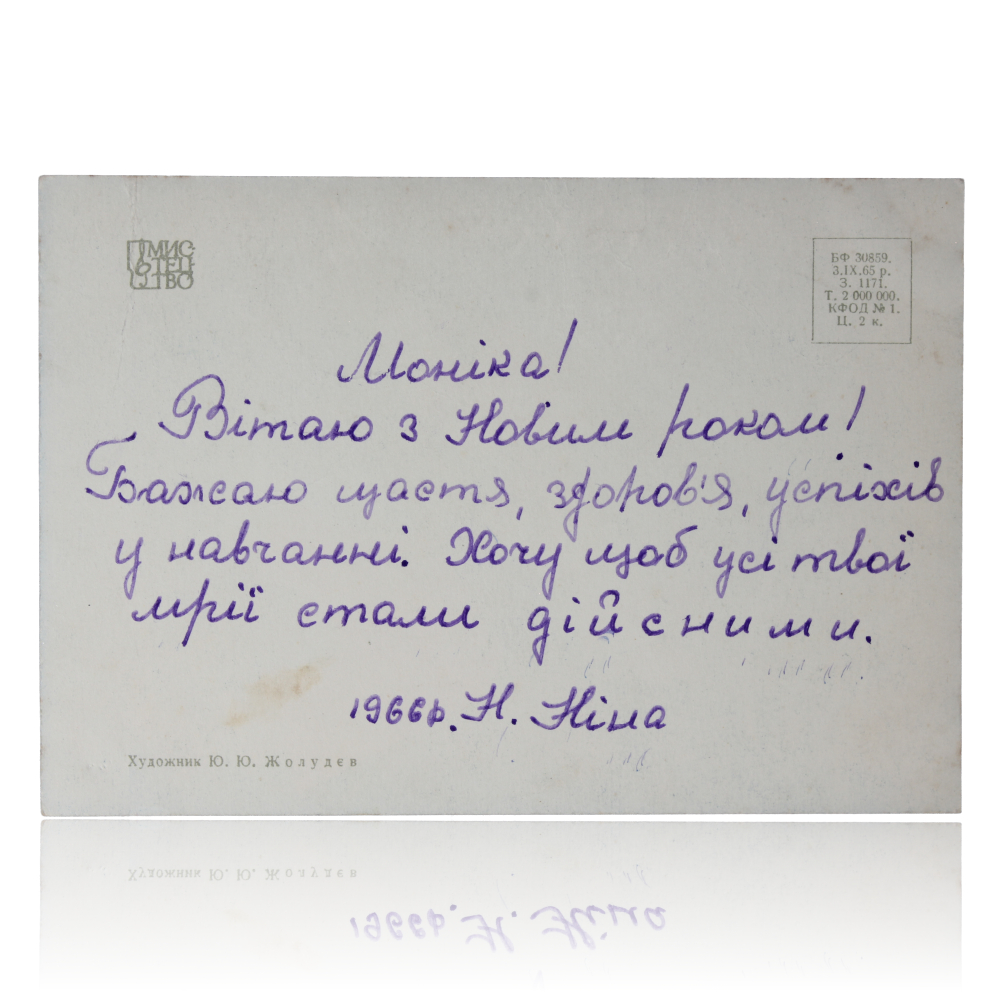 МИС-
ТЕЦ-
ТВО
БФ 30859.
3.IX.65 р.
З. 1171.
Т. 2 000 000.
КФОД № 1.
Ц. 2 к.
Моніка!
Вітаю з Новим роком!
Бажаю щастя, здоров'я, успіхів
у навчанні. Хочу щоб усі твої
мрії стали дійсними.
1966р. Н. Ніна
Художник Ю. Ю. Жолудєв